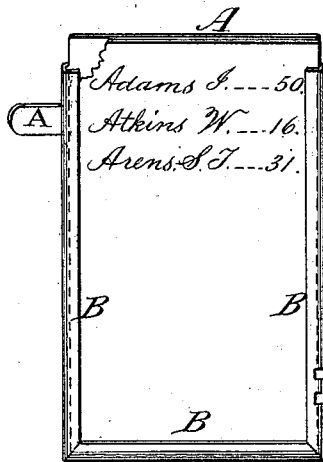 A
Adams J. --- 50.
A
Atkins W. --- 16.
Arens. S. J. --- 31.
B B
B